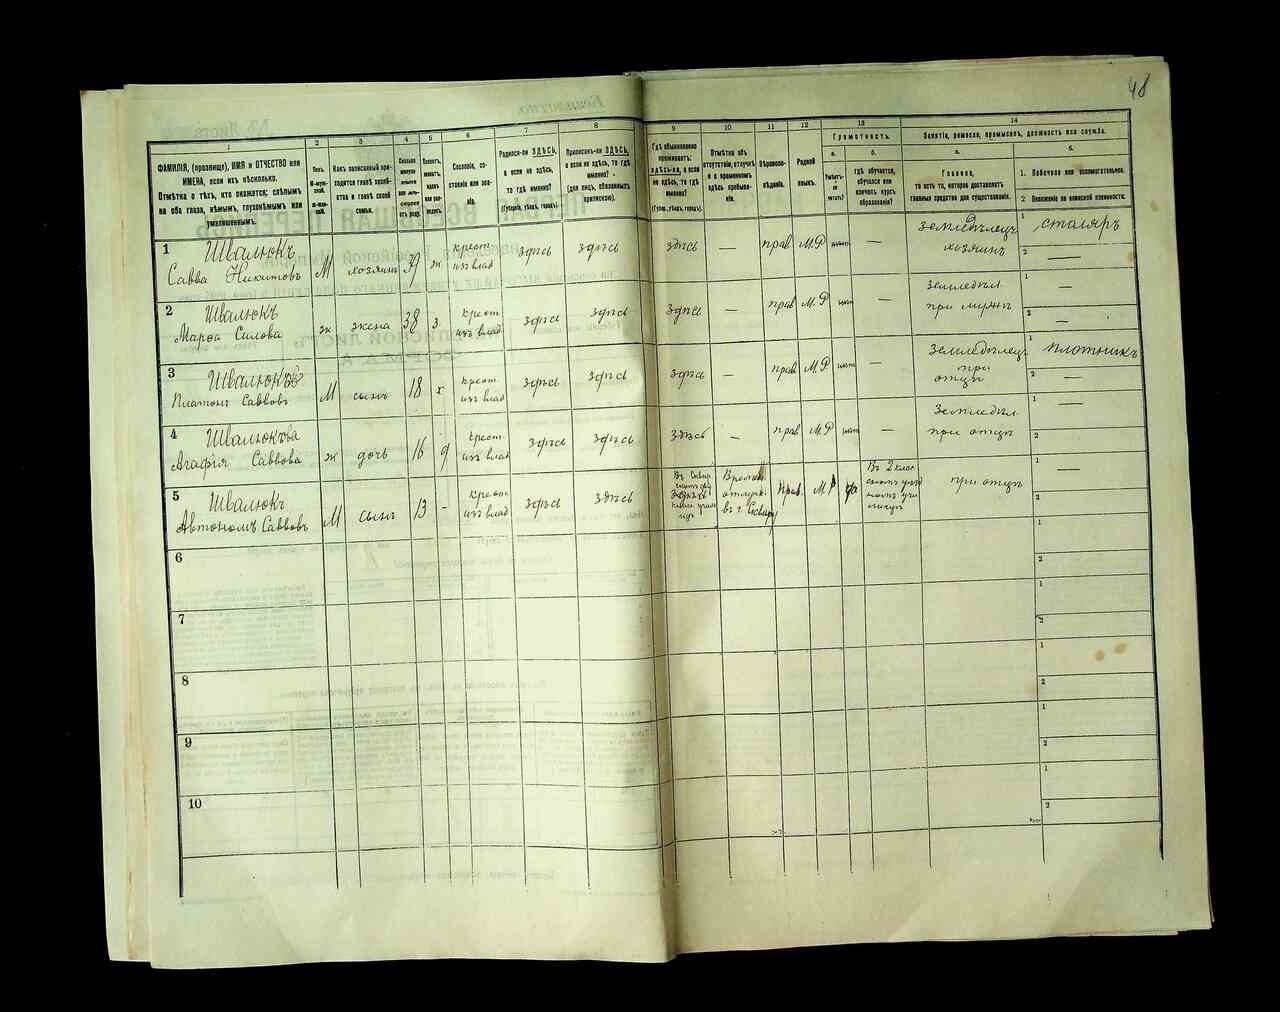 48
1 2 3 4 5 6 7 8 9 10 11 12 13 14
Грамотность.
Занятіе, ремесло, промыселъ, должность или служба.
ФАМИЛІЯ, (прозвище), ИМЯ и ОТЧЕСТВО или
ИМЕНА, если ихъ нѣсколько.
Отмѣтка о тѣхъ, кто окажется: слѣпымъ
на оба глаза, нѣмымъ, глухонѣмымъ или
умалишеннымъ.
Полъ.
М-муж-
ской.
Ж-жен-
ской.
Какъ записанный при-
ходится главѣ хозяй-
ства и главѣ своей
семьи.
Сколько
минуло
лѣтъ
или мѣ-
сяцевъ
отъ роду.
Холостъ,
женатъ,
вдовъ
или раз-
веденъ.
Сословіе, со-
стояніе или зва-
ніе.
Родился-ли ЗДѢСЬ,
а если не здѣсь,
то гдѣ именно?
(Губернія, уѣздъ, городъ).
Приписанъ-ли ЗДѢСЬ,
а если не здѣсь, то гдѣ
именно?
(для лицъ, обязанныхъ
припискою).
Гдѣ обыкновенно
проживаетъ:
здѣсь-ли, а если
не здѣсь, то гдѣ
именно?
(Губерн., уѣздъ, городъ).
Отмѣтка объ
отсутствіи, отлучкѣ
и о временномъ
здѣсь пребыва-
ніи.
Вѣроиспо-
вѣданіе.
Родной
языкъ.
а.
Умѣетъ-
ли
читать?
б.
гдѣ обучается,
обучался или
кончилъ курсъ
образованія?
а.
Главное,
то есть то, которое доставляетъ
главныя средства для существованія.
б.
1. Побочное или вспомогательное.
2. Положеніе по воинской повинности.
1 Швалюкъ
Савва Никитовъ М хозяинъ 39 ж крест. изъ влад здѣсь здѣсь здѣсь — прав М.Р нѣт — земледѣлецъ хозяинъ 1 столяръ
2 —
2 Швалюкъ
Марѳа Силова ж жена 38 з крест. изъ влад здѣсь здѣсь здѣсь — прав М.Р нѣт — земледѣл при мужѣ 1 —
2 —
3 Швалюкъ
Платонъ Саввовъ М сынъ 18 х крест. изъ влад здѣсь здѣсь здѣсь — прав М.Р нѣт — земледѣлецъ при отцѣ 1 плотникъ
2 —
4 Швалюкова
Агафія Саввова ж дочь 16 д крест. изъ влад здѣсь здѣсь здѣсь — прав М.Р нѣт — земледѣл при отцѣ 1 —
2
5 Швалюкъ
Автономъ Саввовъ М сынъ 13 - крест. изъ влад здѣсь здѣсь отлучк. въ г. Сквиру прав. М.Р да Въ 2 клас при отцѣ 1 —
2
6 1
2
7 1
2
8 1
2
9 1
2
10 1
2